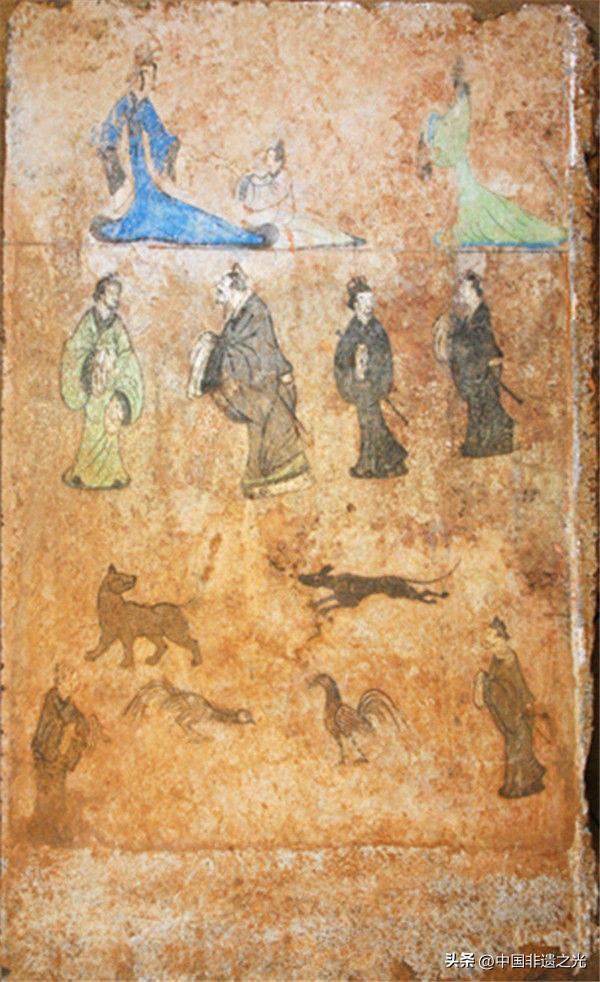 头条 @中国非遗之光